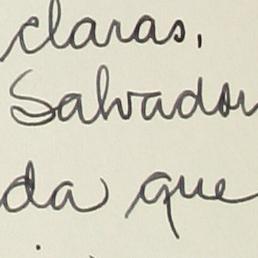 claras,
Salvador
da que